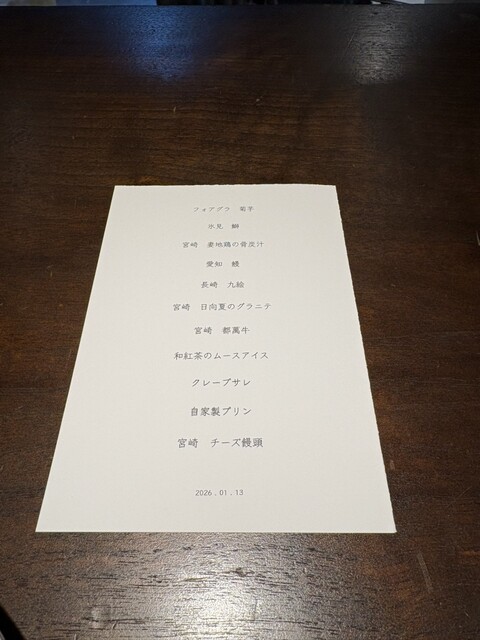 フォアグラ　菊芋
氷見　鰤
宮崎　妻地鶏の骨皮汁
愛知　鰻
長崎　九絵
宮崎　日向夏のグラニテ
宮崎　都萬牛
和紅茶のムースアイス
クレープサレ
自家製プリン
宮崎　チーズ饅頭
2026.01.13